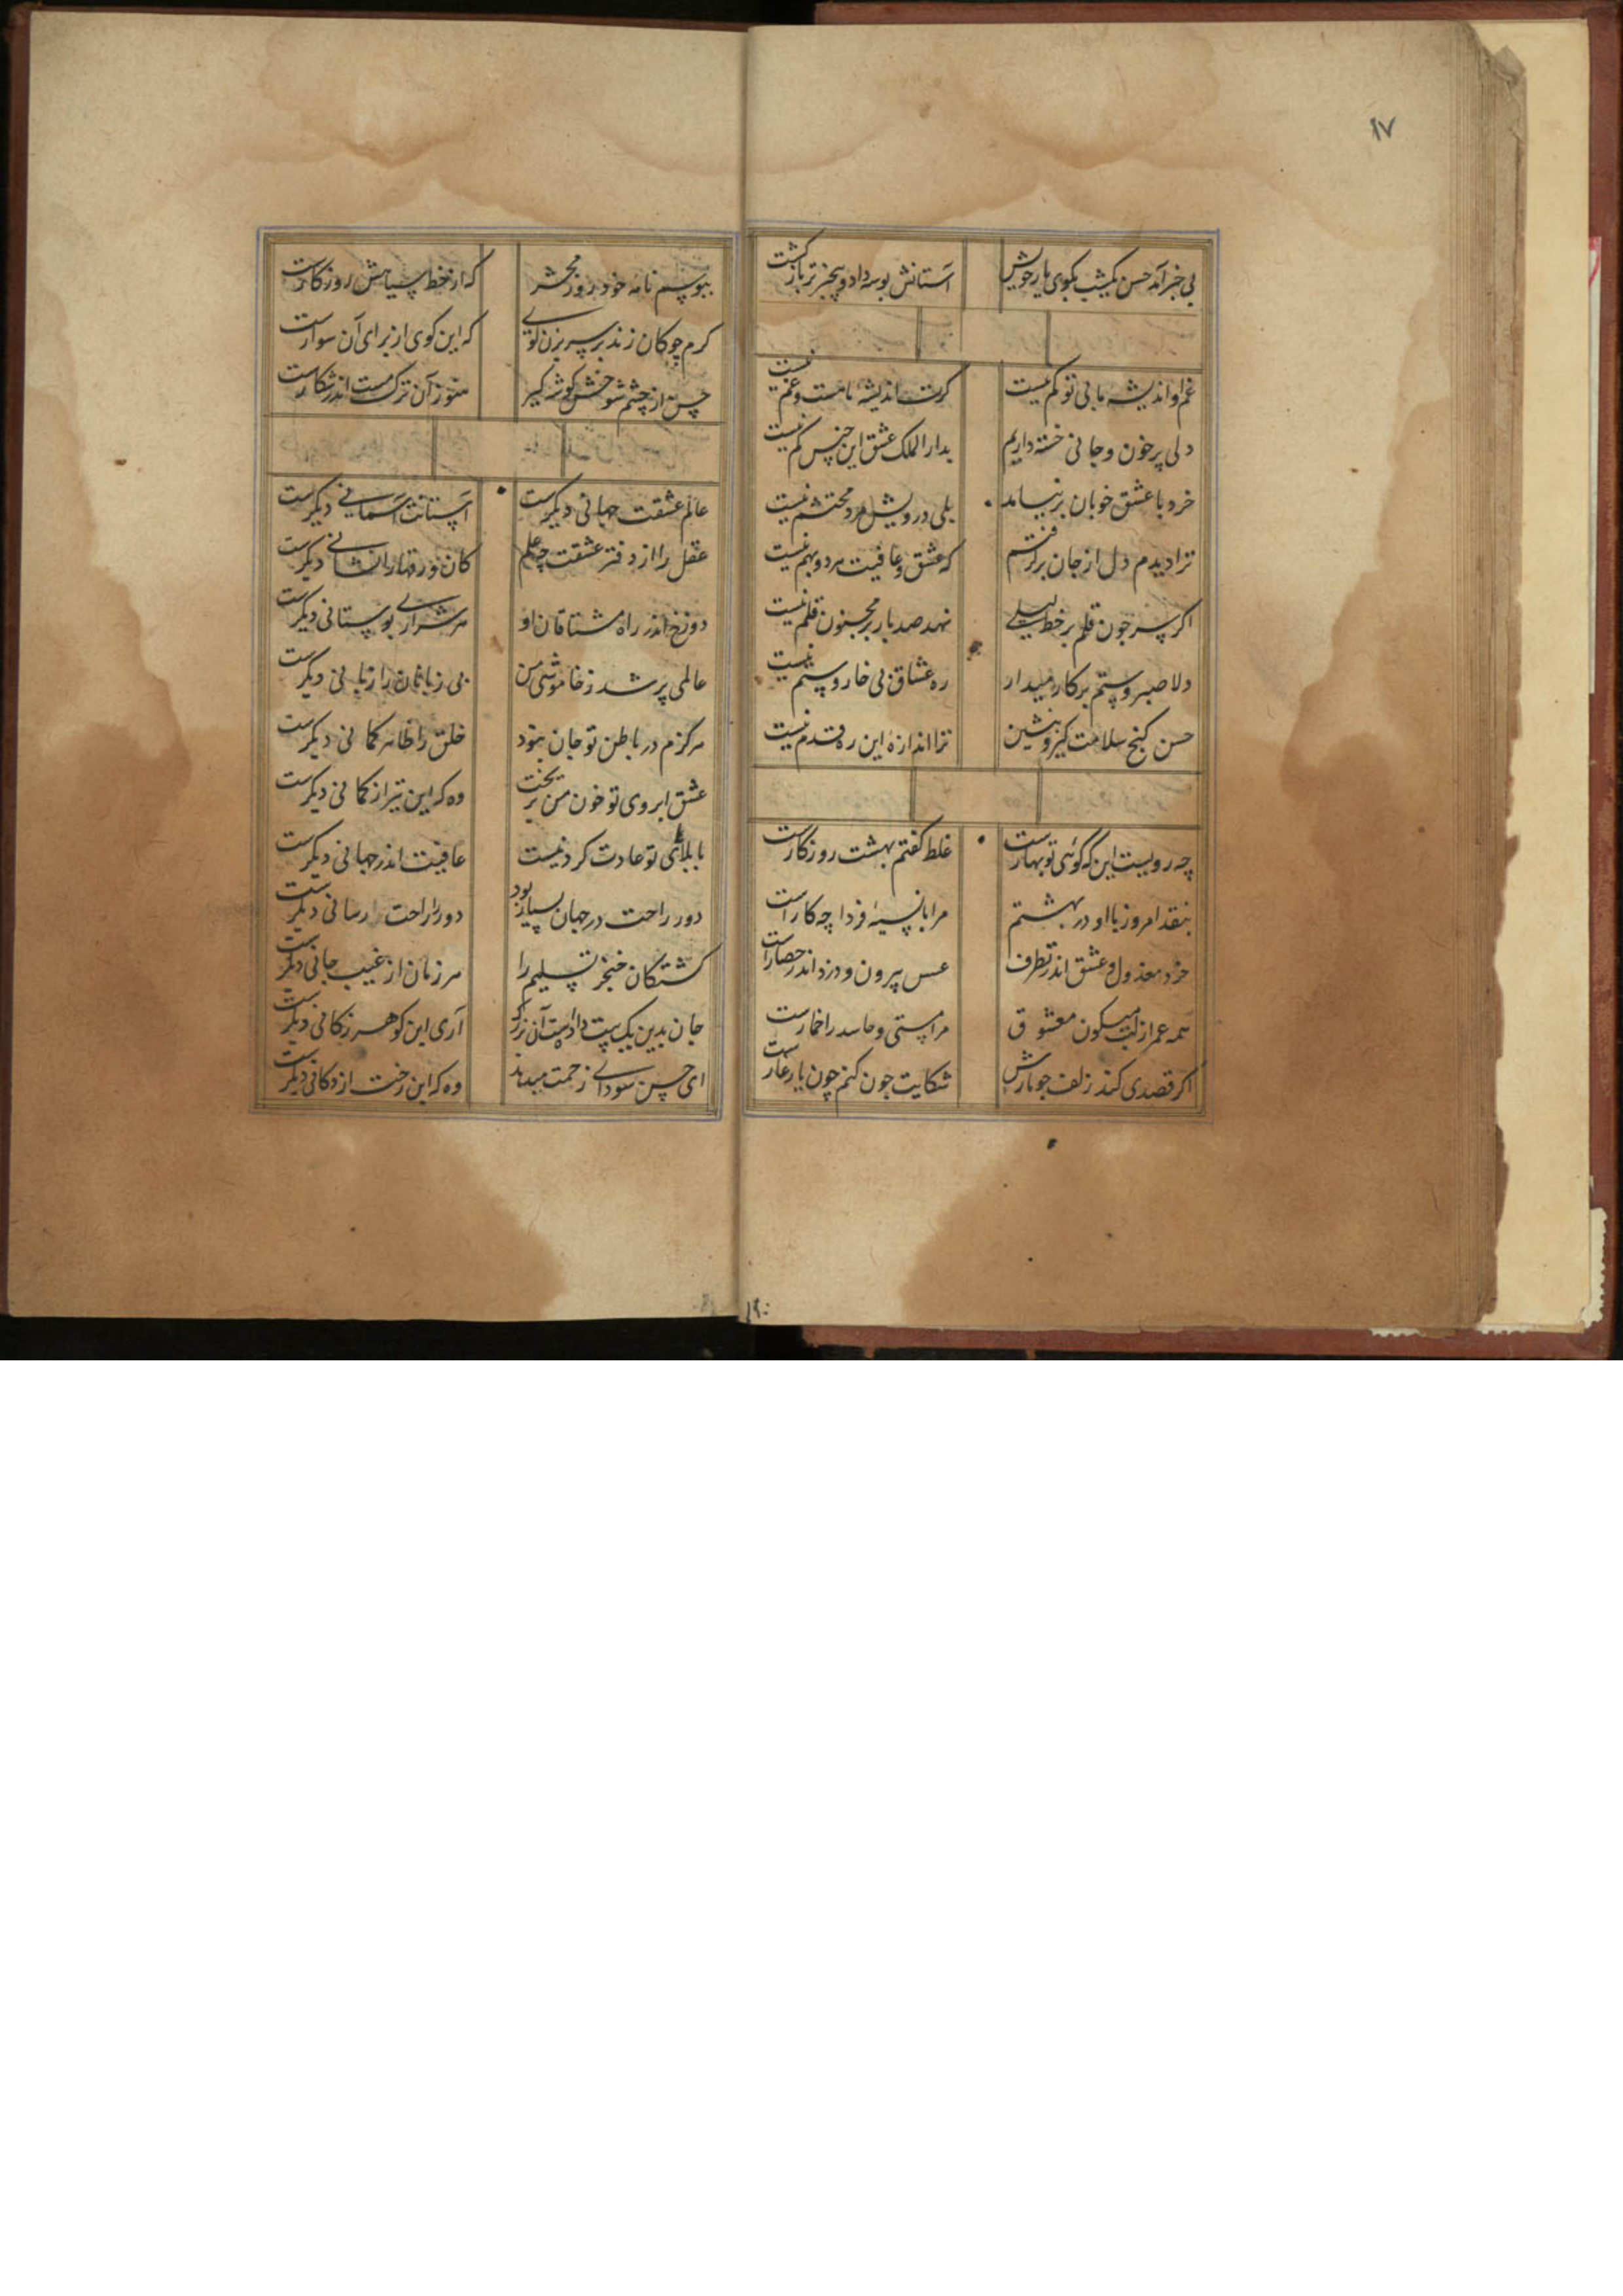 ۹۷
بی خبر آمد حسن یکشب بکوی یار خویش آستانش بوسه داد و بیخبرتر باز گشت
غم و اندیشه ما بی تو کم نیست کرت اندیشه ما هست و غم نیست
دلی پر خون و جانی خسته داریم بدار الملک عشق این جنس کم نیست
خرد با عشق خوبان برنیاید بلی درویش مرد محتشم نیست
ترا دیدم دل از جان برکرفتم که عشق و عافیت هر دو بهم نیست
اکر سر چون قلم بر خط لیلی نهد صد بار بر مجنون قلم نیست
دلا صبر و ستم بر کار میدار ره عشاق بی خار و ستم نیست
حسن کنج سلامت کیر و بنشین ترا اندازه این ره قدم نیست
چه رویست این که کوئی نوبهارست غلط کفتم بهشت روزکارست
بنقد امروز با او در بهشتم مرا با نسیه فردا چه کارست
خرد معزول و عشق اندر تصرف عسس بیرون و دزد اندر حصارست
همه عمر از لب میکون معشوق مرا مستی و حاسد را خمارست
اکر قصدی کند زلف چو مارش شکایت چون کنم چون یار غارست
۱۹۰
ببوسم نامه خود روز محشر که از خط سیاهش روزکارست
کرم چوکان زند بر سر بزن کوی که این کوی از برای آن سوارست
حسن از چشم شوخش کوشه کیر هنوز آن ترک مست اندر شکارست
عالم عشقت جهانی دیکرست آستانت آسمانی دیکرست
عقل را از دفتر عشقت چه علم کان ورقها را نشانی دیکرست
دوزخ اندر راه مشتاقان او هر شراری بوستانی دیکرست
عالمی پر شد ز خاموشی من بی زبانان را زبانی دیکرست
هرکزم در باطن تو جان نبود خلق را ظاهر کمانی دیکرست
عشق ابروی تو خون من بریخت وه که این تیر از کمانی دیکرست
با بلای تو عادت کردنیست عافیت اندر جهانی دیکرست
دور راحت در جهان بسیار بود دور را راحت رسانی دیکرست
کشتکان خنجر تسلیم را هر زمان از غیب جانی دیکرست
جان بدین یک بیت دادست آن بزرک آری این کوهر ز کانی دیکرست
ای حسن سودای زحمت میدهد وه که این رخت از دکانی دیکرست